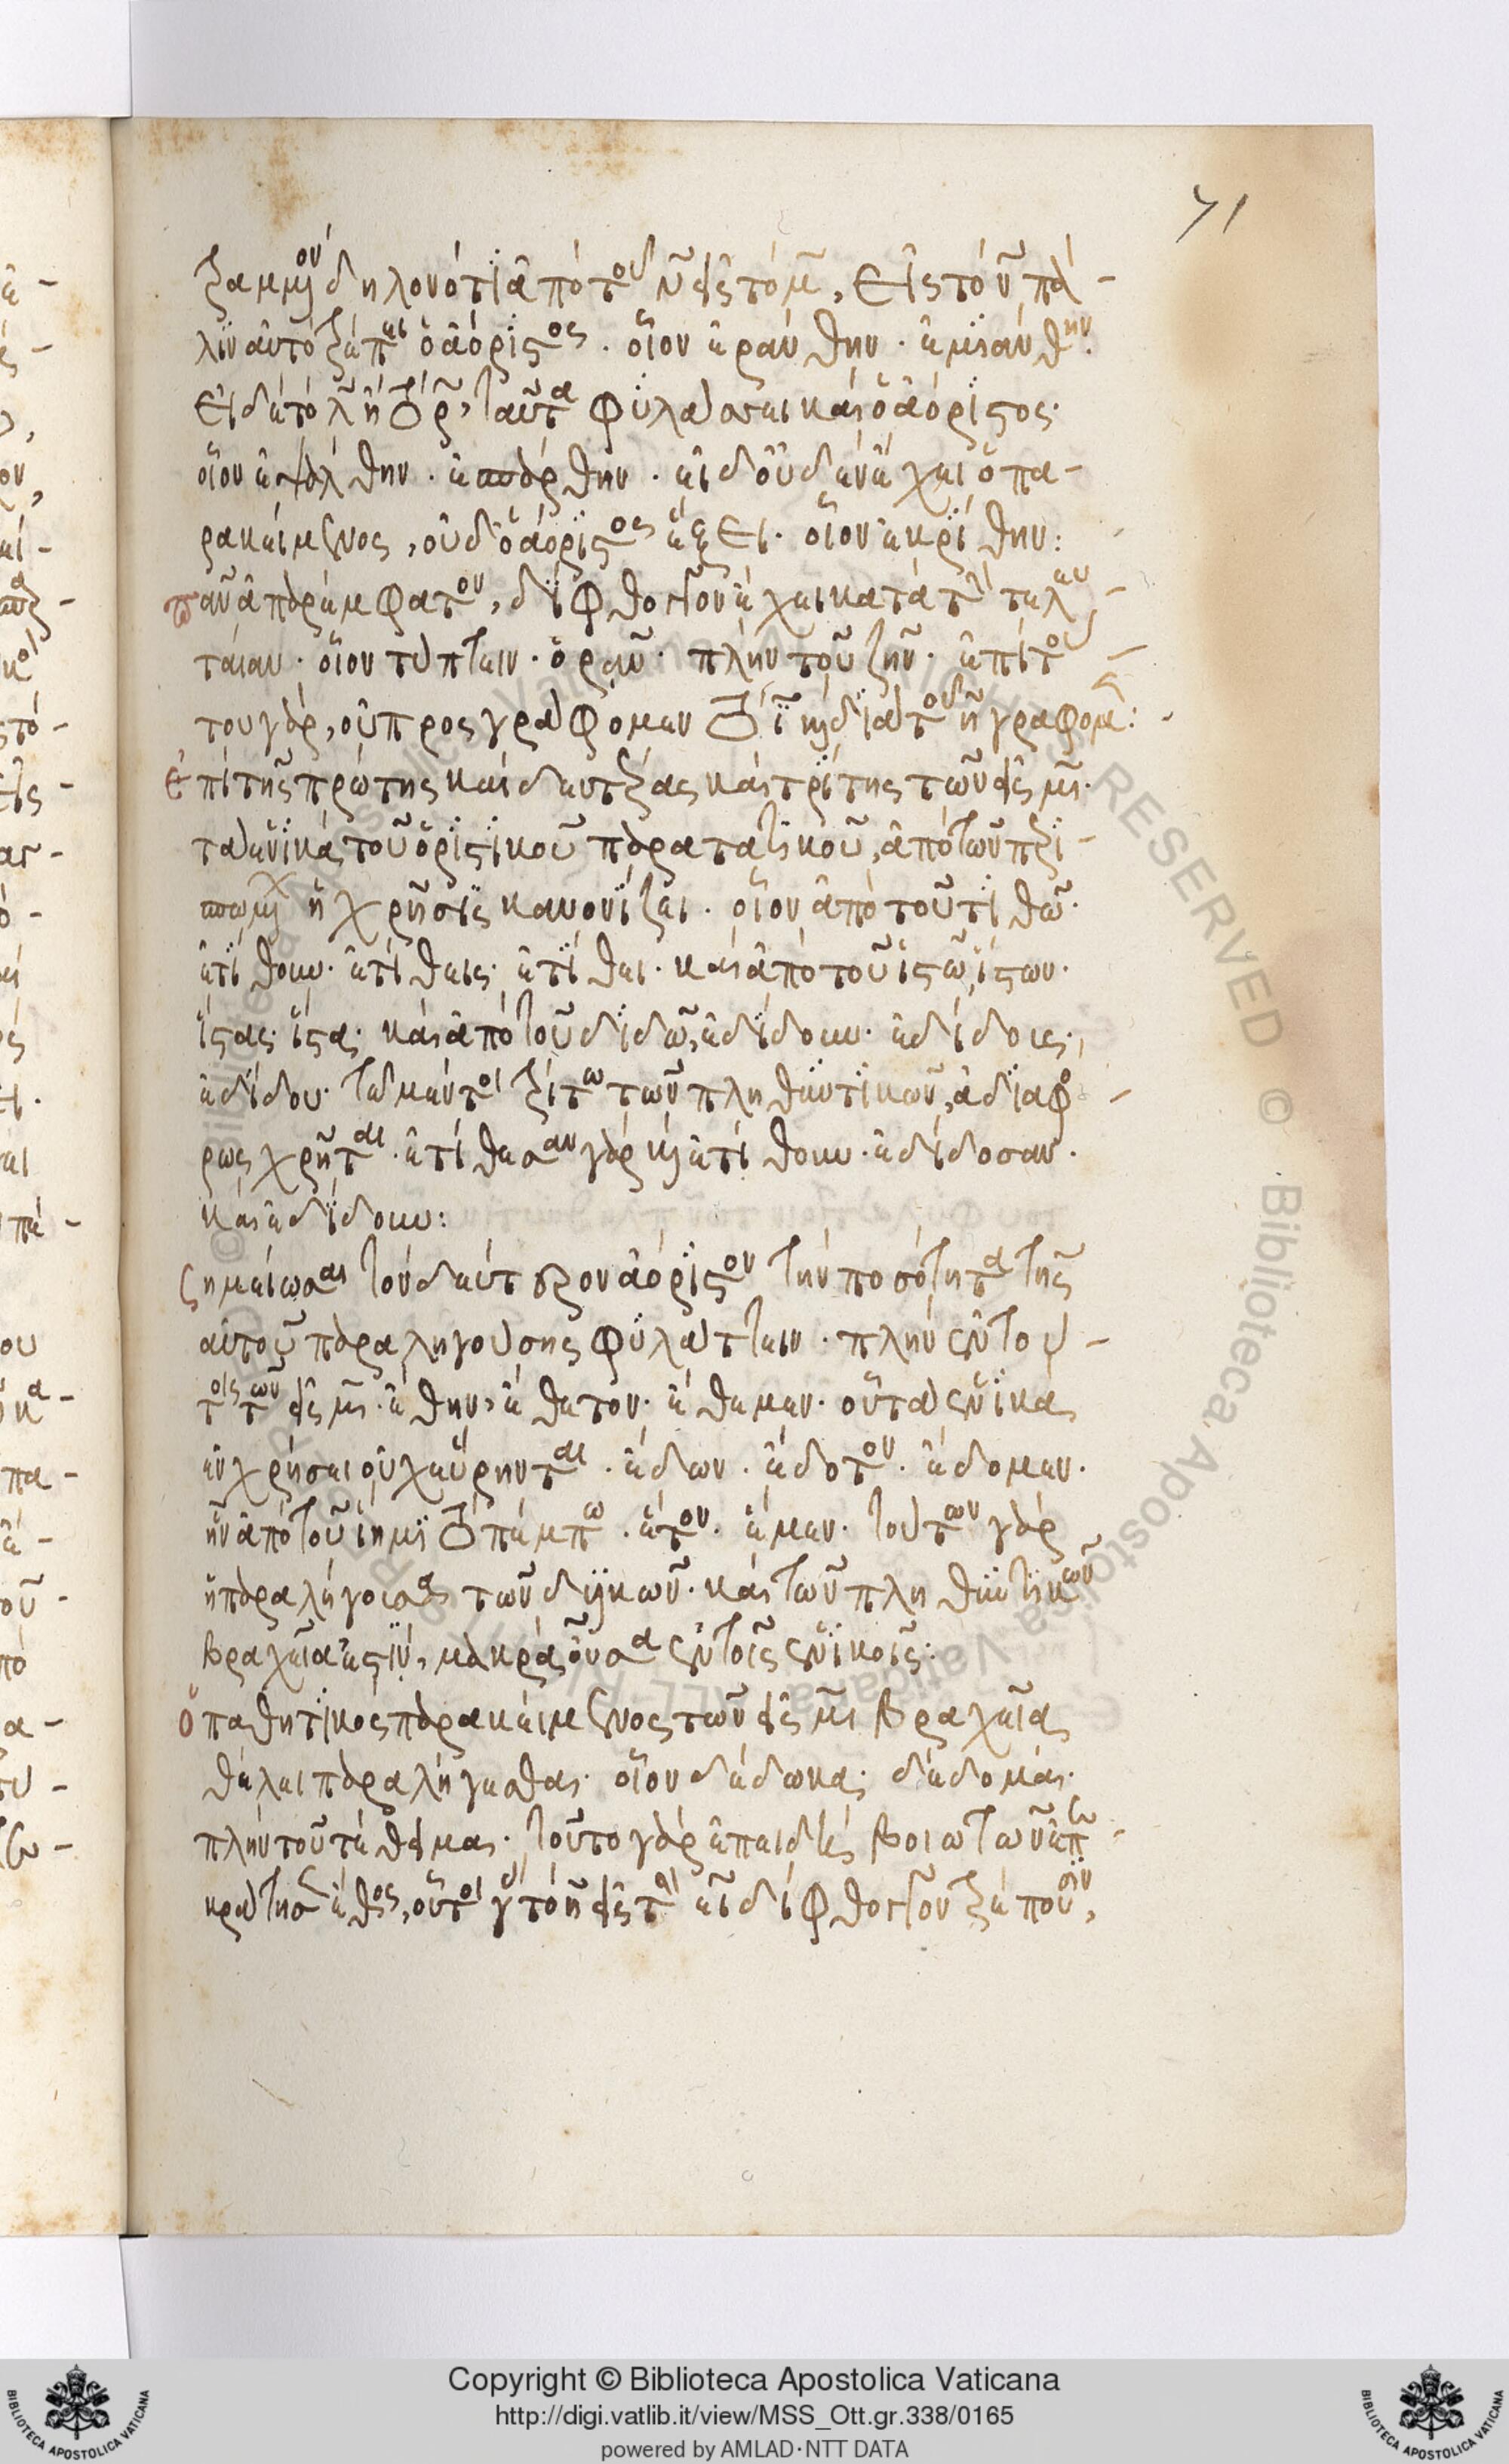 71
δηλονότι ἀπὸ τοῦ ν εἰς τὸ μ, εἰς τὸ ν πά-
λιν αὐτὸ τρέπει ὁ ἀόριστος. οἷον ἐράνθην. ἐμιάνθην.
εἰ δὲ τὸ λ ἢ τὸ ρ, ταῦτα φυλάσσει καὶ ὁ ἀόριστος.
οἷον ἐψάλθην. ἐσπάρθην. εἰ δ' οὐδὲν ἔχει ὁ πα-
ρακείμενος, οὐδ' ὁ ἀόριστος ἕξει. οἷον ἐκρίθην:
πᾶν ἀπαρέμφατον, δίφθογγον ἔχει κατὰ τὴν τελευ-
ταίαν. οἷον τύπτειν. ὁρᾷν. πλὴν τοῦ ζῆν. ἐπὶ τού-
του γὰρ, οὐ προσγράφομεν τὸ ϊ καὶ διὰ τοῦ η γράφομεν:
ἐπὶ τῆς πρώτης καὶ δευτέρας καὶ τρίτης τῶν εἰς μι.
τὰ ἑνικὰ τοῦ ὁριστικοῦ παρατατικοῦ, ἀπὸ τῶν περι-
σπωμένων ἡ χρῆσις κανονίζει. οἷον ἀπὸ τοῦ τιθῶ.
ἐτίθουν. ἐτίθεις. ἐτίθει. καὶ ἀπὸ τοῦ ἱστῶ, ἵστων.
ἵστας. ἵστα. καὶ ἀπὸ τοῦ διδῶ, ἐδίδουν. ἐδίδους.
ἐδίδου. τὰ μέντοι τρίτα τῶν πληθυντικῶν, ἀδιαφό-
ρως χρῆται. ἐτίθεσαν γὰρ καὶ ἐτίθουν. ἐδίδοσαν.
καὶ ἐδίδουν:
σημείωσαι τὸν δεύτερον ἀόριστον τὴν ποσότητα τῆς
αὐτοῦ παραληγούσης φυλάττειν. πλὴν ἐν τού-
τοις τῶν εἰς μι. ἔθην, ἔθετον. ἔθεμεν. οὗ τὰ ἑνικὰ
ἐν χρήσει οὐχ εὕρηνται. ἔδων. ἔδοτον. ἔδομεν.
ἧν ἀπὸ τοῦ ἵημι τὸ πέμπω. ἕτον. ἕμεν. τούτων γὰρ
ἡ παραλήγουσα τῶν δυϊκῶν. καὶ τῶν πληθυντικῶν
βραχεῖα ἐστὶν, μακρὰ οὖσα ἐν τοῖς ἑνικοῖς:
ὁ παθητικὸς παρακείμενος τῶν εἰς μι βραχείᾳ
θέλει παραλήγεσθαι. οἷον δέδωκα. δέδομαι.
πλὴν τοῦ τέθειμαι. τοῦτο γὰρ ἐπειδὴ Βοιωτῶν ἐπε-
κράτησεν ἔθος, οὗτοι γὰρ τὸ η εἰς τὴν ει δίφθογγον τρέπουσιν,
Copyright © Biblioteca Apostolica Vaticana
http://digi.vatlib.it/view/MSS_Ott.gr.338/0165
powered by AMLAD·NTT DATA